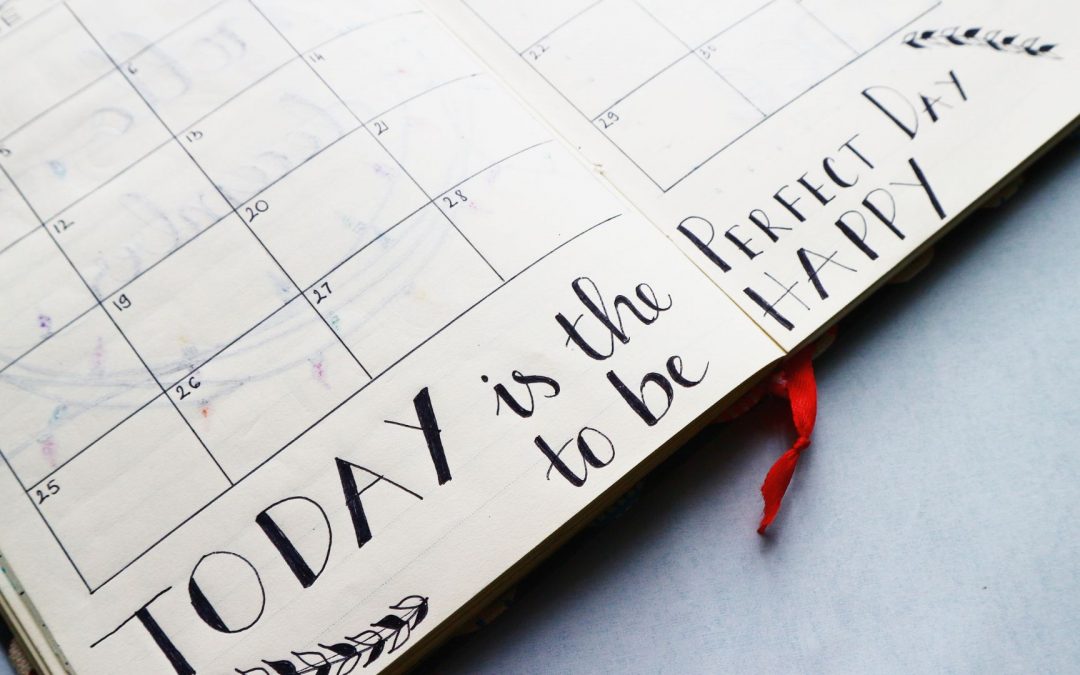 6
12 13 14
19 20 21
25 26 27 28
22
29 30
TODAY is the PERFECT DAY
to be HAPPY